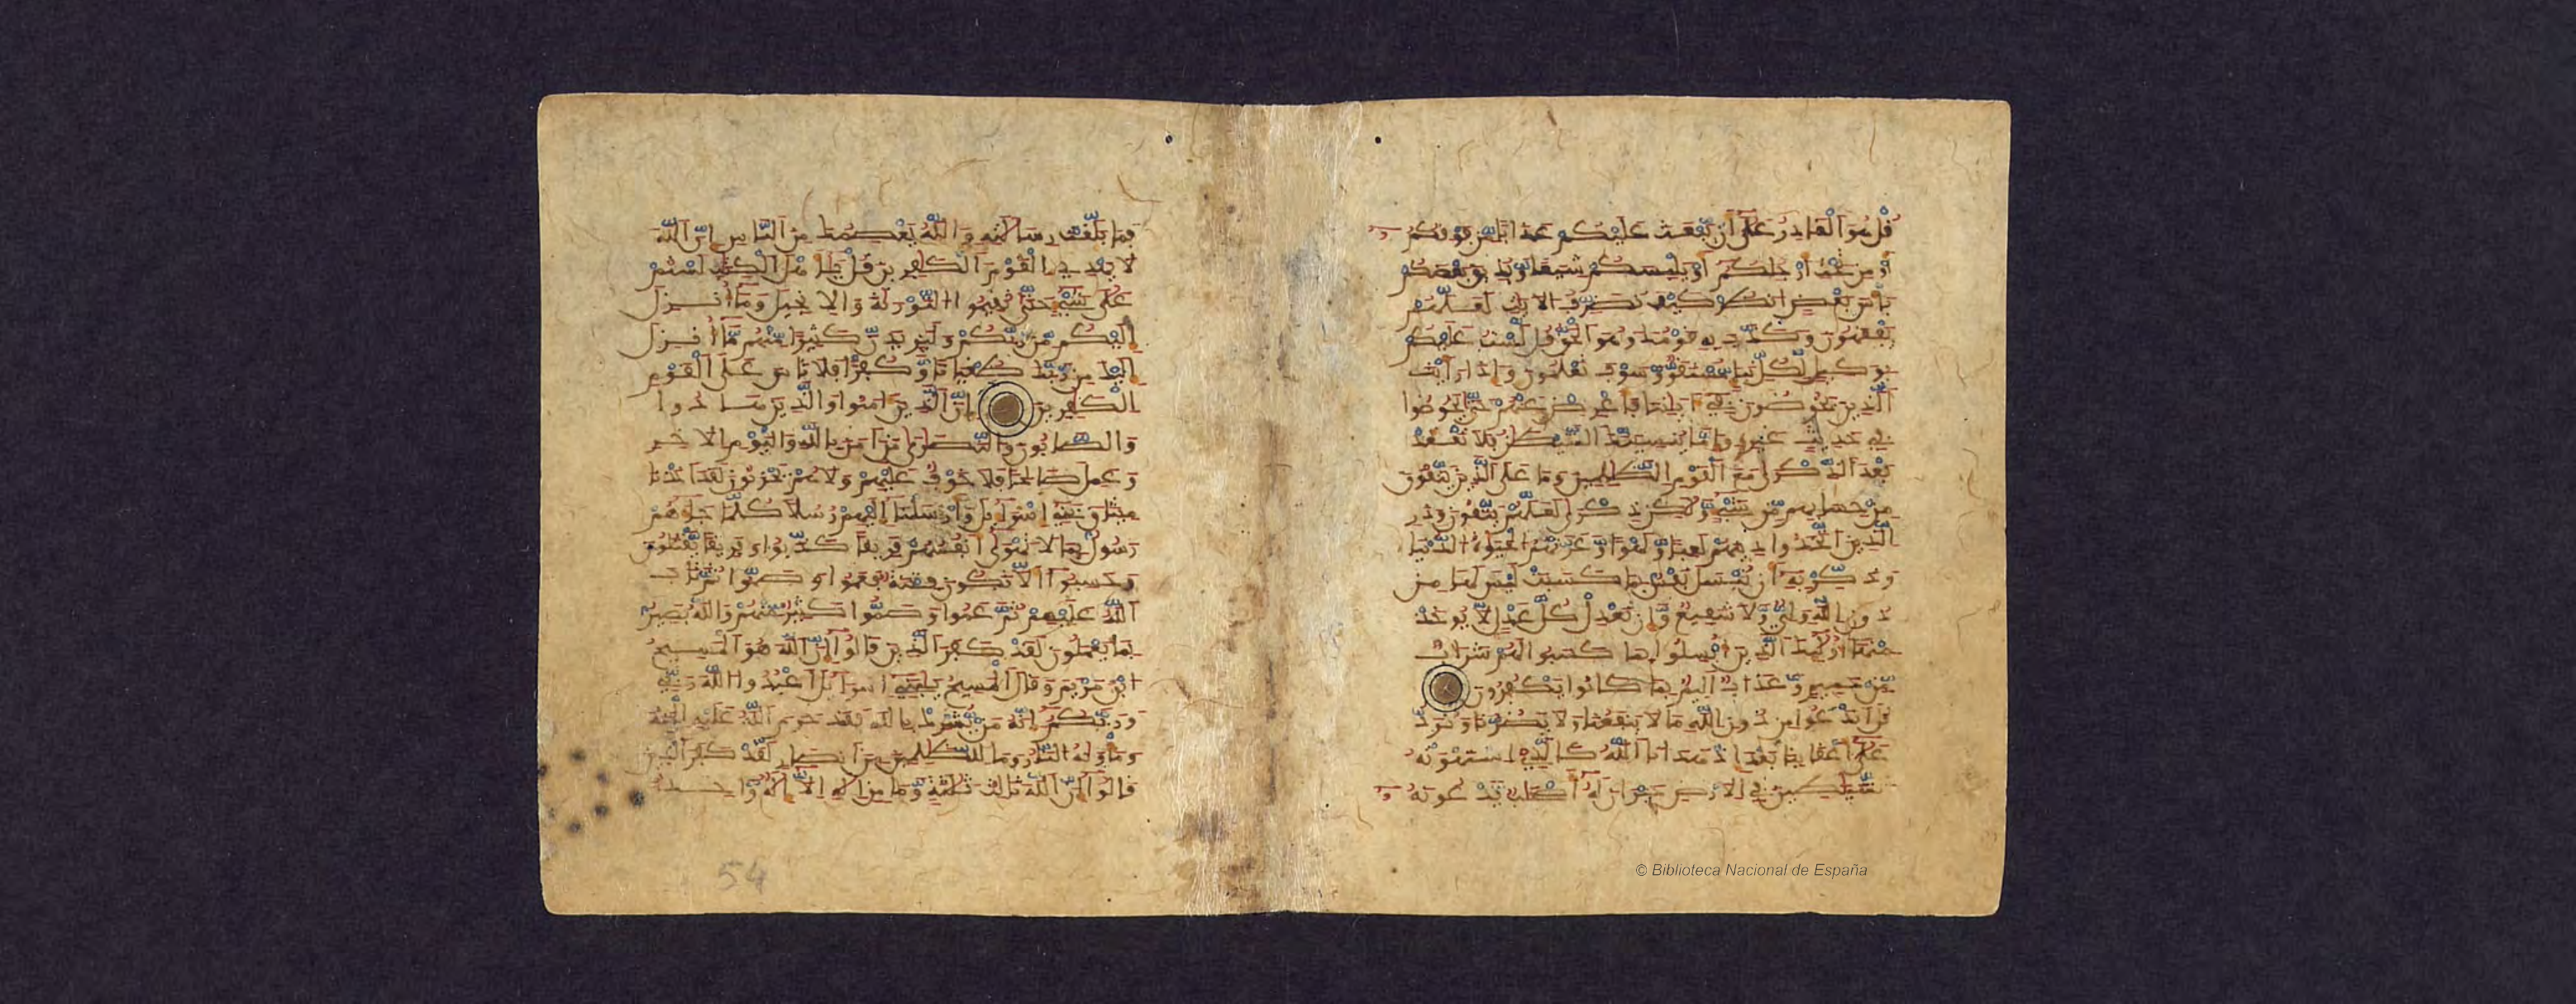 قل هو القادر على أن يبعث عليكم عذابا من فوقكم
أو من تحت أرجلكم أو يلبسكم شيعا ويذيق بعضكم
بأس بعض انظر كيف نصرف الايت لعلهم
يفقهون وكذب به قومك وهو الحق قل لست عليكم
بوكيل لكل نبإ مستقر وسوف تعلمون وإذا رأيت
الذين يخوضون في ءايتنا فأعرض عنهم حتى يخوضوا
في حديث غيره وإما ينسينك الشيطن فلا تقعد
بعد الذكرى مع القوم الظلمين وما على الذين يتقون
من حسابهم من شيء ولكن ذكرى لعلهم يتقون وذر
الذين اتخذوا دينهم لعبا ولهوا وغرتهم الحيوة الدنيا
وذكر به أن تبسل نفس بما كسبت ليس لها من
دون الله ولي ولا شفيع وإن تعدل كل عدل لا يؤخذ
منها أولئك الذين أبسلوا بما كسبوا لهم شراب
من حميم وعذاب أليم بما كانوا يكفرون
قل أندعوا من دون الله ما لا ينفعنا ولا يضرنا ونرد
على أعقابنا بعد إذ هدينا الله كالذي استهوته
الشيطين في الارض حيران له أصحب يدعونه
© Biblioteca Nacional de España
فما بلغت رسالته والله يعصمك من الناس إن الله
لا يهدي القوم الكفرين قل يأهل الكتب لستم
على شيء حتى تقيموا التورية والانجيل وما أنزل
إليكم من ربكم وليزيدن كثيرا منهم ما أنزل
إليك من ربك طغينا وكفرا فلا تاس على القوم
الكفرين إن الذين ءامنوا والذين هادوا
والصابون والنصرى من ءامن بالله واليوم الاخر
وعمل صالحا فلا خوف عليهم ولا هم يحزنون لقد أخذنا
ميثق بني إسرءيل وأرسلنا إليهم رسلا كلما جاءهم
رسول بما لا تهوى أنفسهم فريقا كذبوا وفريقا يقتلون
وحسبوا ألا تكون فتنة فعموا وصموا ثم تاب
الله عليهم ثم عموا وصموا كثير منهم والله بصير
بما يعملون لقد كفر الذين قالوا إن الله هو المسيح
ابن مريم وقال المسيح يبني إسرءيل اعبدوا الله ربي
وربكم إنه من يشرك بالله فقد حرم الله عليه الجنة
ومأويه النار وما للظلمين من أنصار لقد كفر الذين
قالوا إن الله ثلث ثلثة وما من إله إلا إله وحد
54